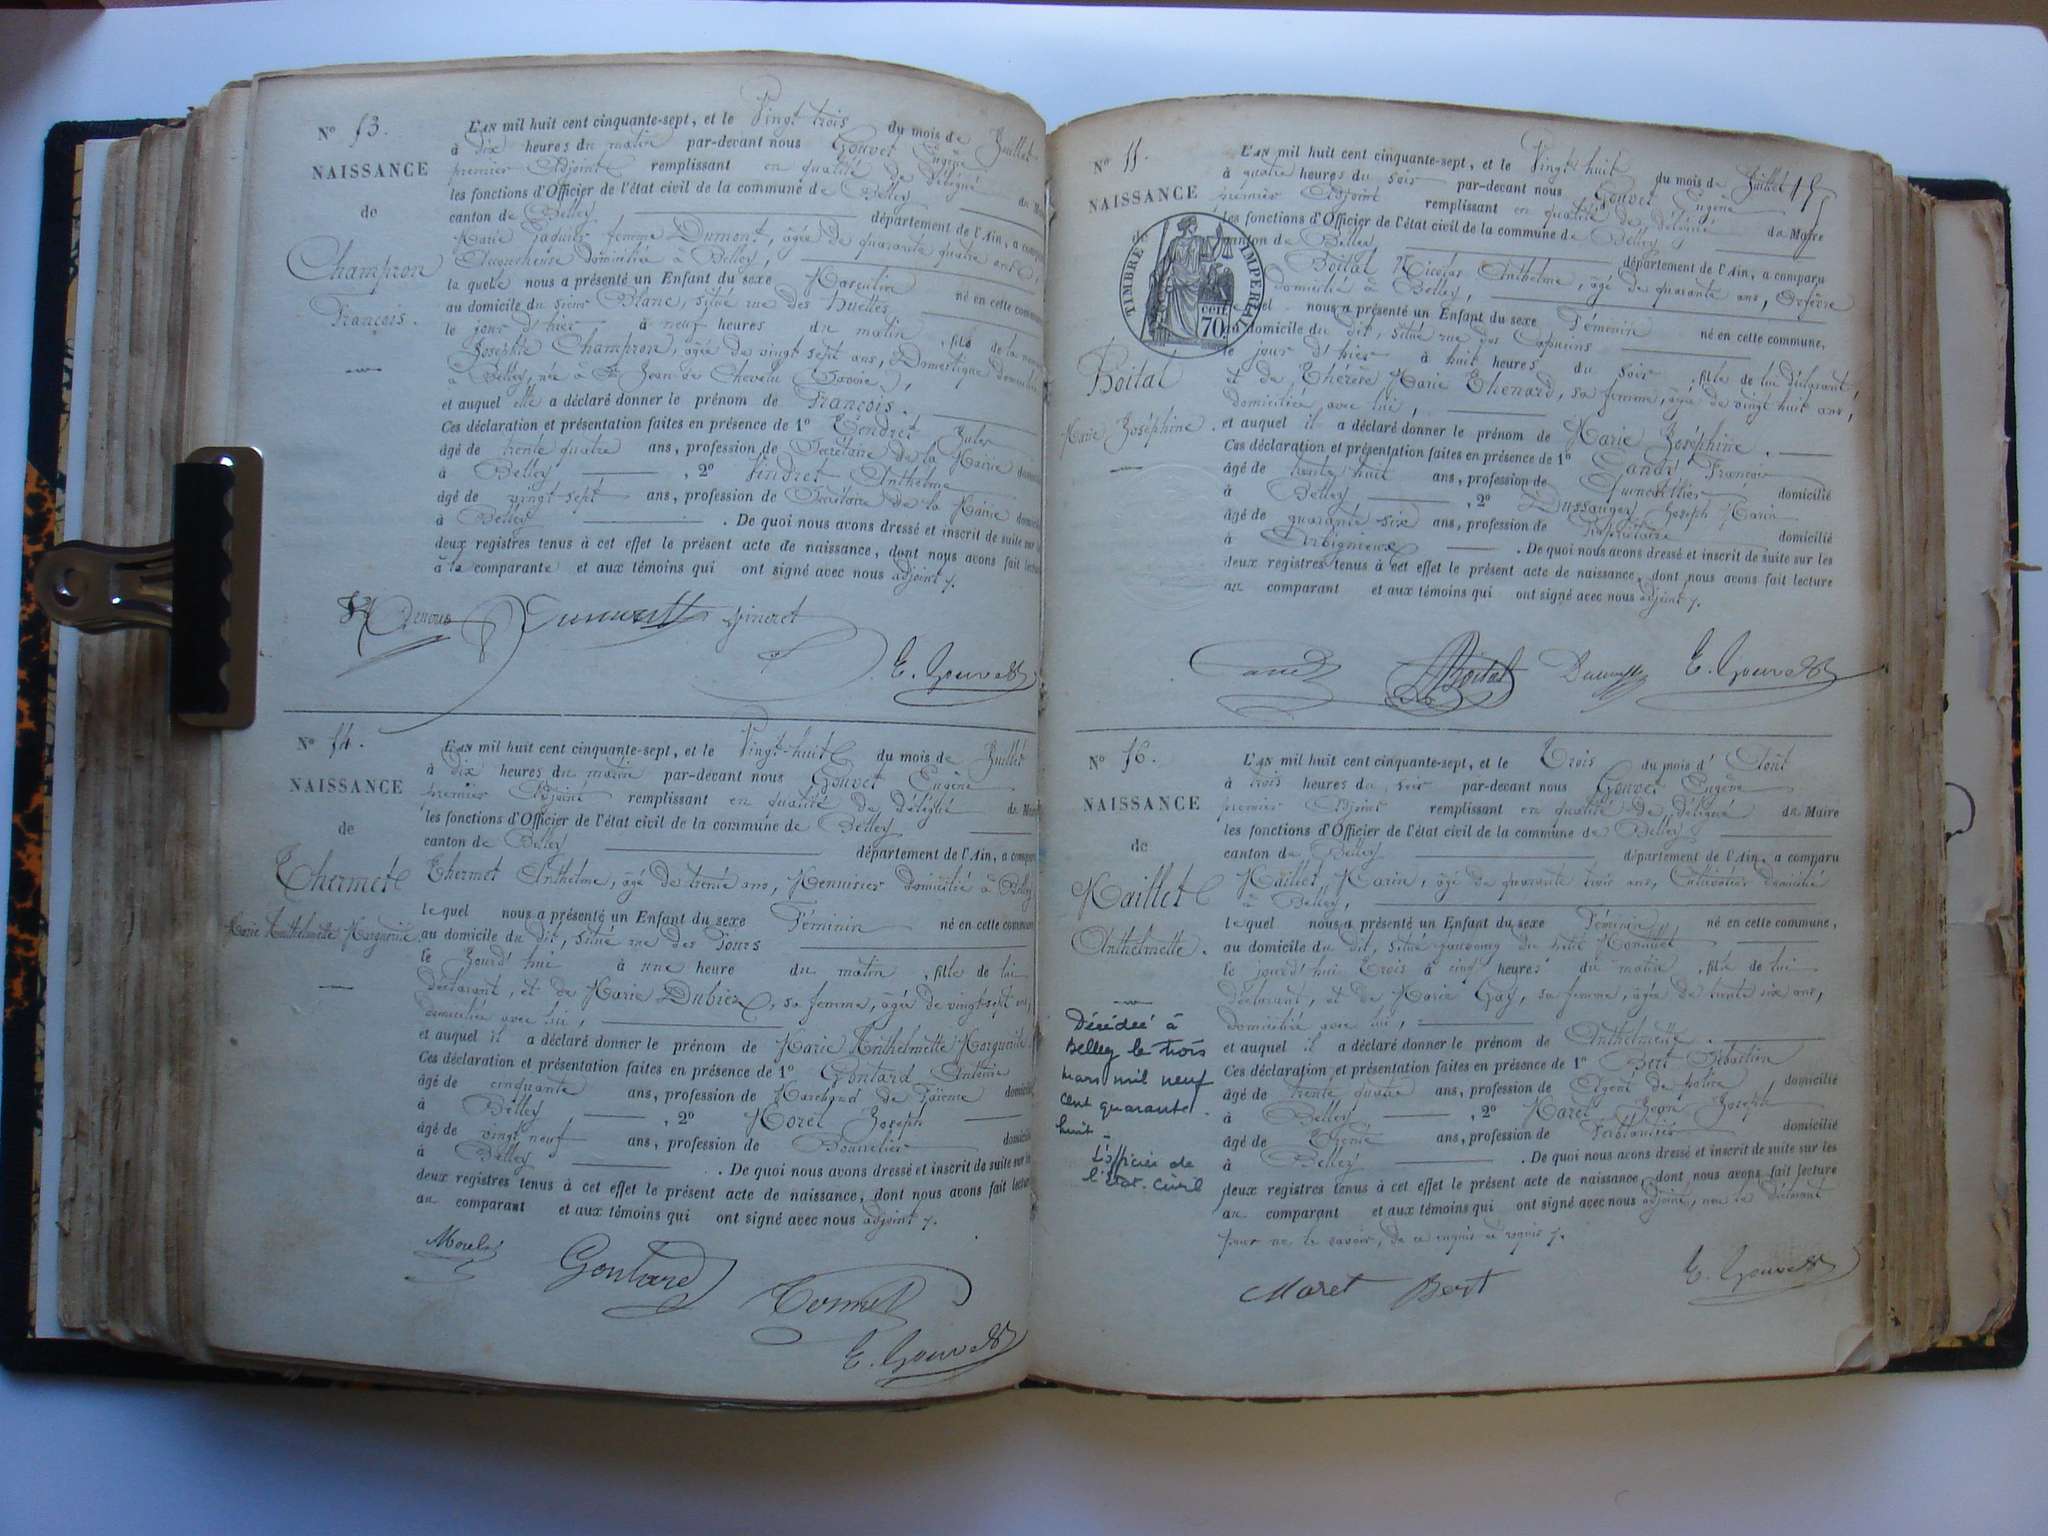 N° 53.
NAISSANCE
de
Champron
François.
L'AN mil huit cent cinquante-sept, et le Vingt trois du mois de Juillet
à dix heures du matin par-devant nous Gouvet Eugène
premier Adjoint remplissant en qualité de délégué du
les fonctions d'Officier de l'état civil de la commune de Belley
canton de Belley département de l'Ain, a
Marie femme Dumont, âgée de quarante quatre ans,
Accoucheuse domiciliée à Belley,
la quelle nous a présenté un Enfant du sexe Masculin né en cette
au domicile du sieur Blanc, situé rue des
le jour d'hier à neuf heures du matin, fils de la
Josephte Champron, âgée de vingt sept ans, Domestique
à Belley, née à St Jean de Chevelu (Savoie),
et auquel elle a déclaré donner le prénom de François.
Ces déclaration et présentation faites en présence de 1° Jules
âgé de trente quatre ans, profession de Secrétaire de la Mairie
à Belley, 2° Anthelme
âgé de vingt sept ans, profession de Secrétaire de la Mairie
à Belley. De quoi nous avons dressé et inscrit de suite sur
deux registres tenus à cet effet le présent acte de naissance, dont nous avons fait
à la comparante et aux témoins qui ont signé avec nous adjoint
E. Gouvet
N° 54.
NAISSANCE
de
Thermet
Marie Anthelmette Marguerite
L'AN mil huit cent cinquante-sept, et le Vingt-huit du mois de Juillet
à dix heures du matin par-devant nous Gouvet Eugène
premier Adjoint remplissant en qualité de délégué du
les fonctions d'Officier de l'état civil de la commune de Belley
canton de Belley département de l'Ain, a
Thermet Anthelme, âgé de trente ans, Menuisier domicilié à Belley
lequel nous a présenté un Enfant du sexe Féminin né en cette
au domicile du dit, situé rue des Tours
le Jourd'hui à une heure du matin, fille de lui
déclarant, et de Marie Dubiez, sa femme, âgée de vingt-sept ans,
domiciliée avec lui,
et auquel il a déclaré donner le prénom de Marie Anthelmette Marguerite
Ces déclaration et présentation faites en présence de 1° Gontard Antoine
âgé de cinquante ans, profession de Marchand de Faïence
à Belley, 2° Morel Joseph
âgé de vingt neuf ans, profession de Bourrelier
à Belley. De quoi nous avons dressé et inscrit de suite sur
deux registres tenus à cet effet le présent acte de naissance, dont nous avons fait lecture
au comparant et aux témoins qui ont signé avec nous adjoint
Morel
Gontard
E. Gouvet
N° 55.
NAISSANCE
de
TIMBRE IMPÉRIAL
70 cent.
Boital
Marie Joséphine.
L'AN mil huit cent cinquante-sept, et le Vingt-huit du mois de Juillet
à quatre heures du soir par-devant nous Gouvet Eugène
premier Adjoint remplissant en qualité de délégué du Maire
les fonctions d'Officier de l'état civil de la commune de Belley
canton de Belley département de l'Ain, a comparu
Boital Nicolas Anthelme, âgé de quarante ans, Orfèvre
domicilié à Belley,
lequel nous a présenté un Enfant du sexe Féminin né en cette commune,
au domicile du dit, situé rue des Capucins
le jour d'hier à huit heures du soir, fille de lui déclarant,
et de Thérèse Marie Thenard, sa femme, âgée de vingt huit ans,
domiciliée avec lui,
et auquel il a déclaré donner le prénom de Marie Joséphine.
Ces déclaration et présentation faites en présence de 1° François
âgé de trente huit ans, profession de Quincaillier domicilié
à Belley, 2° Joseph Marin
âgé de quarante six ans, profession de Propriétaire domicilié
à Arbignieu. De quoi nous avons dressé et inscrit de suite sur les
deux registres tenus à cet effet le présent acte de naissance, dont nous avons fait lecture
au comparant et aux témoins qui ont signé avec nous adjoint
Boital E. Gouvet
N° 56.
NAISSANCE
de
Maillet
Anthelmette.
Décédée à
Belley le trois
mars mil neuf
cent quarante
huit.
L'officier de
l'état civil
L'AN mil huit cent cinquante-sept, et le Trois du mois d'Août
à trois heures du soir par-devant nous Gouvet Eugène
premier Adjoint remplissant en qualité de délégué du Maire
les fonctions d'Officier de l'état civil de la commune de Belley
canton de Belley département de l'Ain, a comparu
Maillet Marin, âgé de quarante trois ans, Cultivateur domicilié
à Belley,
lequel nous a présenté un Enfant du sexe Féminin né en cette commune,
au domicile du dit, situé faubourg du
le jourd'hui Trois à cinq heures du matin, fille de lui
déclarant, et de Marie Gay, sa femme, âgée de trente six ans,
domiciliée avec lui,
et auquel il a déclaré donner le prénom de Anthelmette.
Ces déclaration et présentation faites en présence de 1° Bert Sébastien
âgé de trente quatre ans, profession de Agent de Police, domicilié
à Belley, 2° Maret Jean Joseph
âgé de Trente ans, profession de Ferblantier domicilié
à Belley. De quoi nous avons dressé et inscrit de suite sur les
deux registres tenus à cet effet le présent acte de naissance, dont nous avons fait lecture
au comparant et aux témoins qui ont signé avec nous adjoint, non le déclarant
pour ne le savoir, de ce enquis et requis
Maret Bert
E. Gouvet